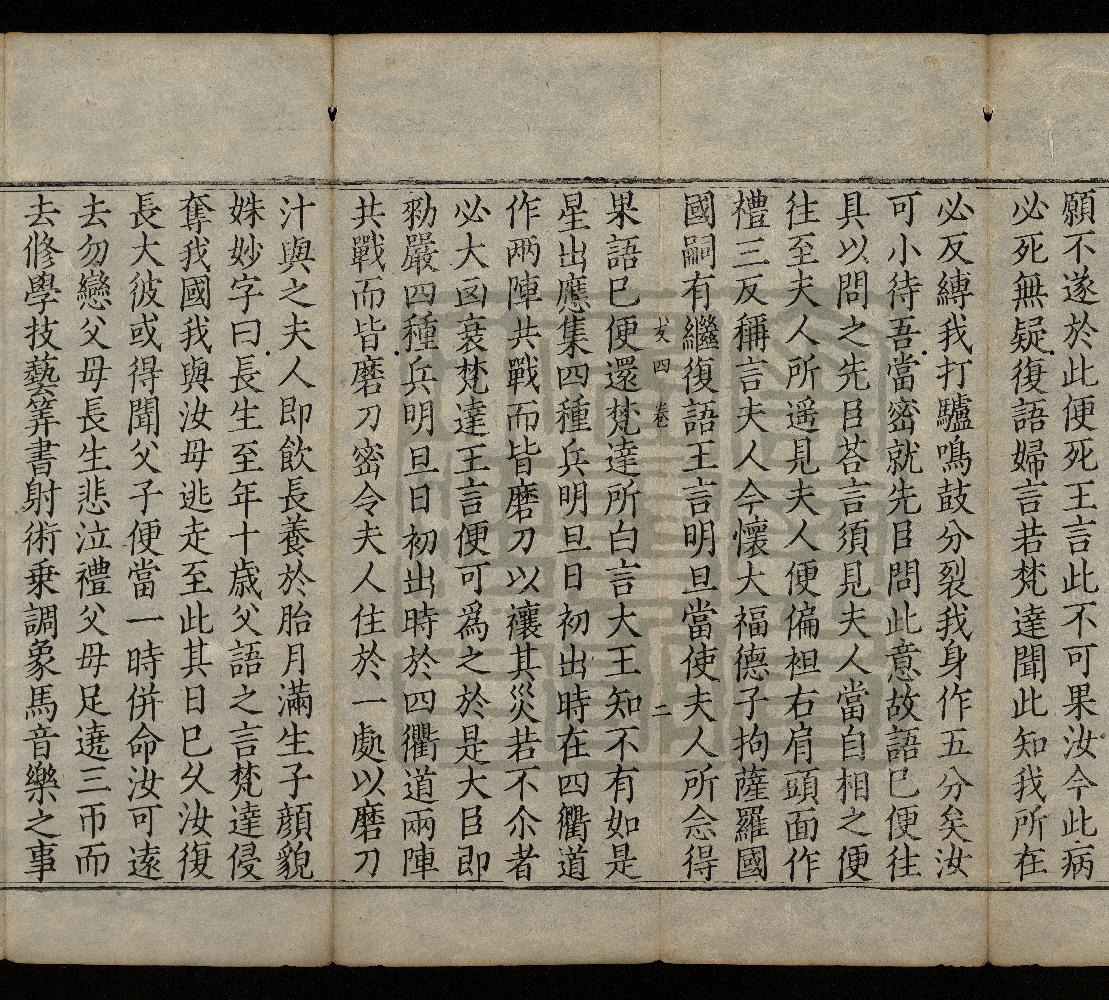 願不遂於此便死王言此不可果汝今此病
必死無疑復語婦言若梵達聞此知我所在
必反縛我打驢鳴鼓分裂我身作五分矣汝
可小待吾當密就先臣問此意故語已便往
具以問之先臣荅言須見夫人當自相之便
往至夫人所遥見夫人便偏袒右肩頭面作
禮三反稱言夫人今懷大福德子拘薩羅國
國嗣有繼復語王言明旦當使夫人所念得
四 卷 二
果語已便還梵達所白言大王知不有如是
星出應集四種兵明旦日初出時在四衢道
作兩陣共戰而皆磨刀以禳其災若不尒者
必大凶衰梵達王言便可爲之於是大臣即
勑嚴四種兵明旦日初出時於四衢道兩陣
共戰而皆磨刀密令夫人住於一處以磨刀
汁與之夫人即飲長養於胎月滿生子顔貌
姝妙字曰長生至年十歳父語之言梵達侵
奪我國我與汝母逃走至此其日已久汝復
長大彼或得聞父子便當一時併命汝可遠
去勿戀父母長生悲泣禮父母足遶三帀而
去修學技藝筭書射術乗調象馬音樂之事